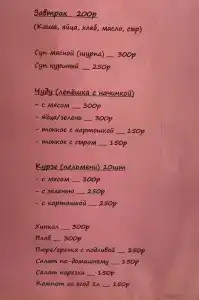 Завтрак 200р
(Каша, яйца, хлеб, масло, сыр)
Суп мясной (шурпа) __ 300р
Суп куриный __ 250р
Чуду (лепёшка с начинкой)
- с мясом __ 300р
- яйца/зелень __ 300р
- тонкое с картошкой __ 150р
- тонкое с сыром __ 150р
Курзе (пельмени) 10шт
- с мясом __ 300р
- с зеленью __ 250р
- с картошкой __ 250р
Хинкал __ 300р
Плов __ 300р
Пюре/гречка с подливой __ 250р
Салат по-домашнему __ 150р
Салат нарезка __ 150р
Компот из ягод 1л __ 150р